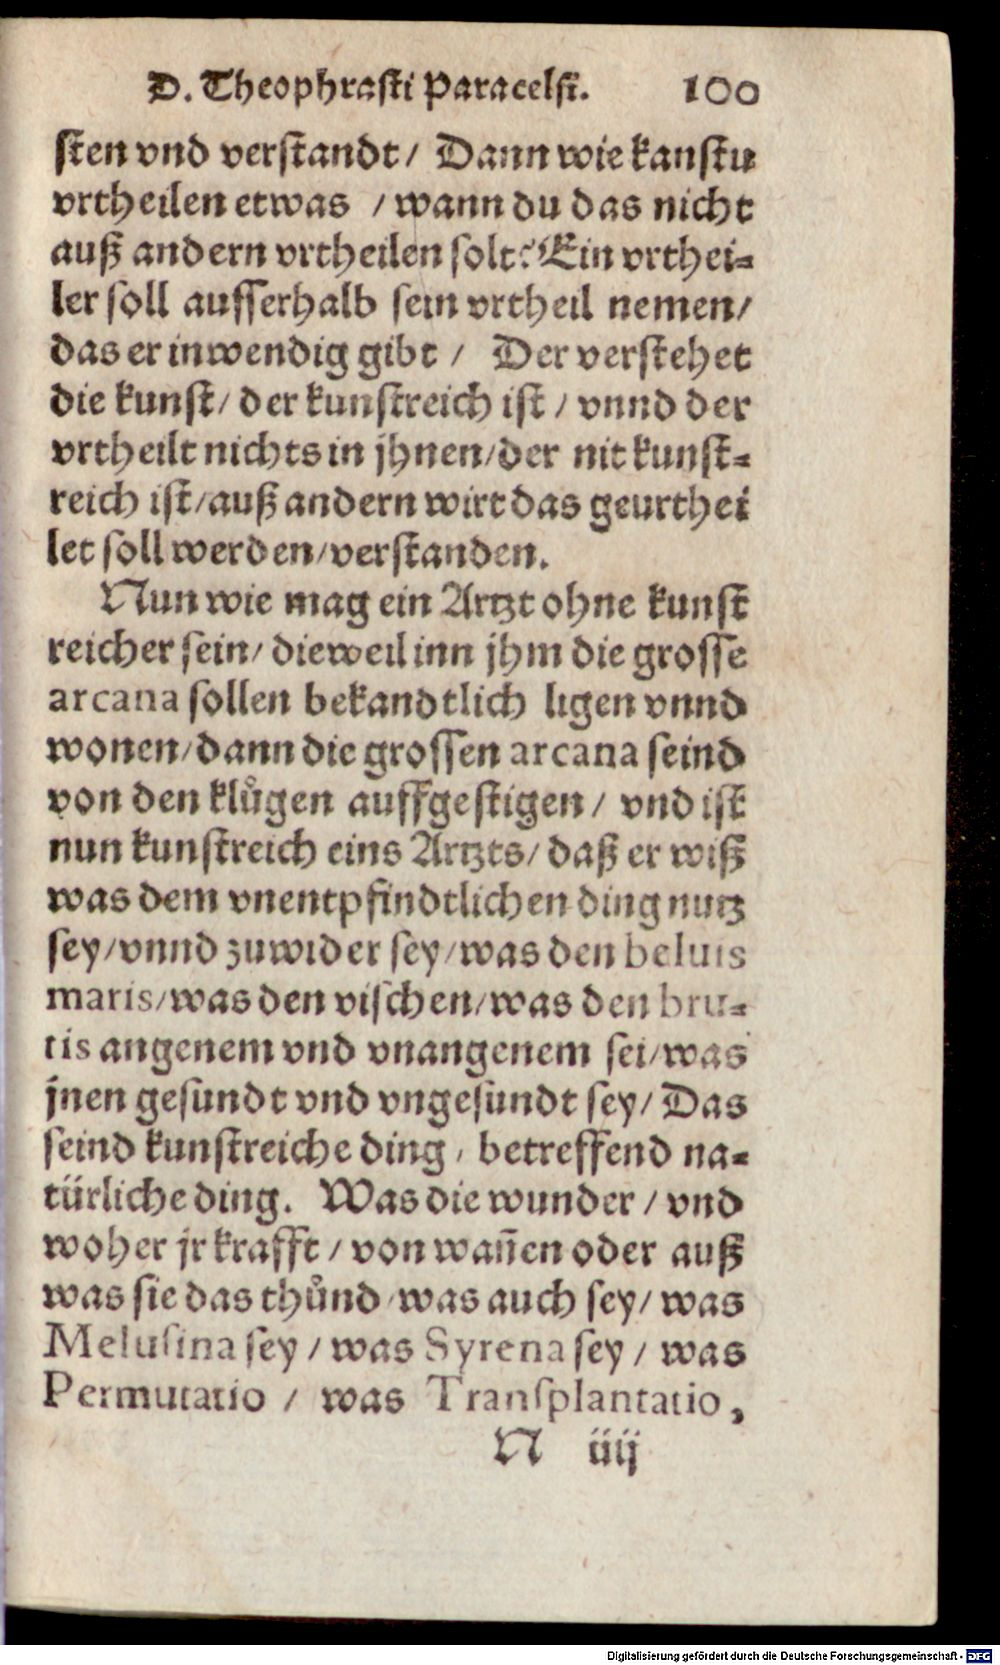 D. Theophrasti Paracelsi. 100
sten vnd verstandt / Dann wie kanstu
vrtheilen etwas / wann du das nicht
auß andern vrtheilen solt? Ein vrthei-
ler soll ausserhalb sein vrtheil nemen /
das er inwendig gibt / Der verstehet
die kunst / der kunstreich ist / vnnd der
vrtheilt nichts in jhnen / der nit kunst-
reich ist / auß andern wirt das geurthei
let soll werden / verstanden.
Nun wie mag ein Artzt ohne kunst
reicher sein / dieweil inn jhm die grosse
arcana sollen bekandtlich ligen vnnd
wonen / dann die grossen arcana seind
von den klůgen auffgestigen / vnd ist
nun kunstreich eins Artzts / daß er wiß
was dem vnentpfindtlichen ding nutz
sey / vnnd zuwider sey / was den beluis
maris / was den vischen / was den bru-
tis angenem vnd vnangenem sei / was
jnen gesundt vnd vngesundt sey / Das
seind kunstreiche ding / betreffend na-
türliche ding. Was die wunder / vnd
woher jr krafft / von wañen oder auß
was sie das thůnd / was auch sey / was
Melusina sey / was Syrena sey / was
Permutatio / was Transplantatio,
N iiij
Digitalisierung gefördert durch die Deutsche Forschungsgemeinschaft - DFG